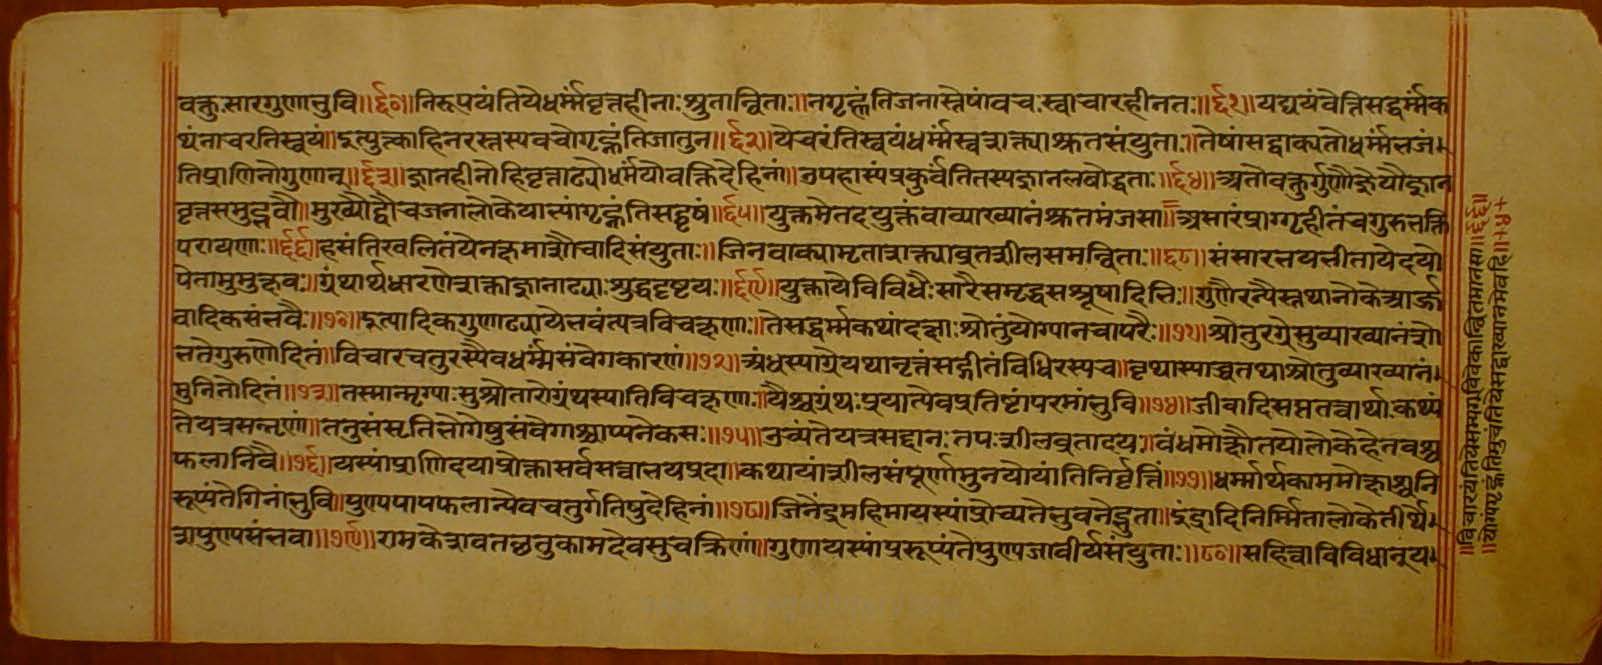 वक्तुःसारगुणानुवि॥६०॥निरूपयंतियेधर्म्मवृत्तहीनाःश्रुतान्विताः॥नगृह्णंतिजनास्तेषांवचःस्वाचारहीनतः॥६१॥यद्ययंवेत्तिसद्धर्म्मंक
थंनाचरतिस्वयं॥इत्युक्त्काहिनरस्तस्यवचोगृह्णंतिजातुन॥६२॥येचरंतिस्वयंधर्म्मंस्वशक्त्याश्रुतसंयुताः॥तेषांसद्वाक्यतोधर्म्मंभजं
तिप्राणिनोगुणान्॥६३॥ज्ञानहीनोहिवृत्ताढ्योधर्मंयोवक्तिदेहिनां॥उपहास्यंप्रकुर्वंतितस्यज्ञानलवोद्धताः॥६४॥अतोवक्तुर्गुणौज्ञेयौज्ञान
वृत्तसमुद्भवौ॥मुख्यौद्वौचजनालोकेयाभ्यांगृह्णंतिसद्वृषं॥६५॥युक्तमेतदयुक्तंवाव्याख्यानंश्रुतमंजसा॥असारंप्राग्गृहीतंचगुरुभक्ति
परायणाः॥६६॥हसंतिस्खलितंयेनक्षमाशौचादिसंयुताः॥जिनवाक्यामृताशक्त्याव्रतशीलसमन्विताः॥६८॥संसारभयभीतायेदयो
पेतामुमुक्षवः॥ग्रंथार्थधारणेशक्ताज्ञानाढ्याःशुद्धदृष्टयः॥६९॥युक्तायेविविधैःसारैसमृद्धसश्रूषादिभिः॥गुणैरन्यैस्तथानोकेआर्ज्ज
वादिकसंभवैः॥७०॥इत्यादिकगुणाढ्यायेभवंत्यत्रविचक्षणाः॥तेसद्धर्म्मकथांदक्षाःश्रोतुंयोग्यानचापरैः॥७१॥श्रोतुरग्रेसुव्याख्यानंशो
भतेगुरुणोदितं॥विचारचतुरस्यैवधर्म्मसंवेगकारणं॥७२॥अंधस्याग्रेयथानृत्तंसद्गीतंविधिरस्यच॥वृथास्याच्चतथाश्रोतुव्याख्यानं
मुनिनोदितं॥७३॥तस्मान्मृग्याःसुश्रोतारोग्रंथस्यातिविचक्षणाः॥यैश्चग्रंथःप्रयात्येवप्रतिष्टांपरमांभुवि॥७४॥जीवादिसप्ततत्वार्थाःकथ्यं
तेयत्रसन्नृणां॥तनुसंसृतिभोगेषुसंवेगाश्चाप्यनेकसः॥७५॥उच्यंतेयत्रसद्दानःतपःशीलव्रतादयः॥बंधमोक्षौतयोलोकेहेतवश्च
फलानिवै॥७६॥यस्यांप्राणिदयाप्रोक्तासर्वसत्वाभयप्रदा॥कथायांशीलसंपूर्णामुनयोयांतिनिर्वृत्तिं॥७७॥धर्म्मार्थकाममोक्षाश्चनि
रूप्यंतेगिनांभुवि॥पुण्यपापफलान्येवचतुर्गतिषुदेहिनां॥७८॥जिनेंद्रमहिमायस्यांप्रोच्यतेभुवनेद्भुता॥इंद्रादिनिर्म्मितालोकेतीर्थ
शपुण्यसंभवा॥७९॥रामकेशवतच्छत्रुकामदेवसुचक्रिणां॥गुणायस्यांप्ररूप्यंतेपुण्यजावीर्यसंयुताः॥८०॥सहित्वाविविधान्य
॥विचारयंतियेसम्यग्विवेकान्वितमानसा॥६६॥